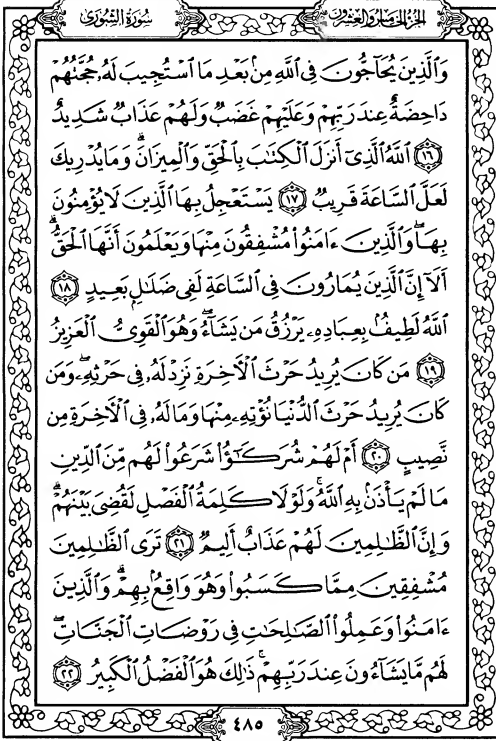 سُورَةُ الشُّورَىٰ
الجُزءُ الخَامِسُ وَالعِشْرُونَ
وَٱلَّذِينَ يُحَآجُّونَ فِى ٱللَّهِ مِنۢ بَعْدِ مَا ٱسْتُجِيبَ لَهُۥ حُجَّتُهُمْ
دَاحِضَةٌ عِندَ رَبِّهِمْ وَعَلَيْهِمْ غَضَبٌ وَلَهُمْ عَذَابٌ شَدِيدٌ
١٦ ٱللَّهُ ٱلَّذِىٓ أَنزَلَ ٱلْكِتَٰبَ بِٱلْحَقِّ وَٱلْمِيزَانَ ۗ وَمَا يُدْرِيكَ
لَعَلَّ ٱلسَّاعَةَ قَرِيبٌ ١٧ يَسْتَعْجِلُ بِهَا ٱلَّذِينَ لَا يُؤْمِنُونَ
بِهَا ۖ وَٱلَّذِينَ ءَامَنُوا۟ مُشْفِقُونَ مِنْهَا وَيَعْلَمُونَ أَنَّهَا ٱلْحَقُّ ۗ
أَلَآ إِنَّ ٱلَّذِينَ يُمَارُونَ فِى ٱلسَّاعَةِ لَفِى ضَلَٰلٍۭ بَعِيدٍ ١٨
ٱللَّهُ لَطِيفٌۢ بِعِبَادِهِۦ يَرْزُقُ مَن يَشَآءُ ۖ وَهُوَ ٱلْقَوِىُّ ٱلْعَزِيزُ
١٩ مَن كَانَ يُرِيدُ حَرْثَ ٱلْءَاخِرَةِ نَزِدْ لَهُۥ فِى حَرْثِهِۦ ۖ وَمَن
كَانَ يُرِيدُ حَرْثَ ٱلدُّنْيَا نُؤْتِهِۦ مِنْهَا وَمَا لَهُۥ فِى ٱلْءَاخِرَةِ مِن
نَّصِيبٍ ٢٠ أَمْ لَهُمْ شُرَكَٰٓؤُا۟ شَرَعُوا۟ لَهُم مِّنَ ٱلدِّينِ
مَا لَمْ يَأْذَنۢ بِهِ ٱللَّهُ ۚ وَلَوْلَا كَلِمَةُ ٱلْفَصْلِ لَقُضِىَ بَيْنَهُمْ ۗ
وَإِنَّ ٱلظَّٰلِمِينَ لَهُمْ عَذَابٌ أَلِيمٌ ٢١ تَرَى ٱلظَّٰلِمِينَ
مُشْفِقِينَ مِمَّا كَسَبُوا۟ وَهُوَ وَاقِعٌۢ بِهِمْ ۗ وَٱلَّذِينَ
ءَامَنُوا۟ وَعَمِلُوا۟ ٱلصَّٰلِحَٰتِ فِى رَوْضَاتِ ٱلْجَنَّاتِ ۖ
لَهُم مَّا يَشَآءُونَ عِندَ رَبِّهِمْ ۚ ذَٰلِكَ هُوَ ٱلْفَضْلُ ٱلْكَبِيرُ ٢٢
٤٨٥